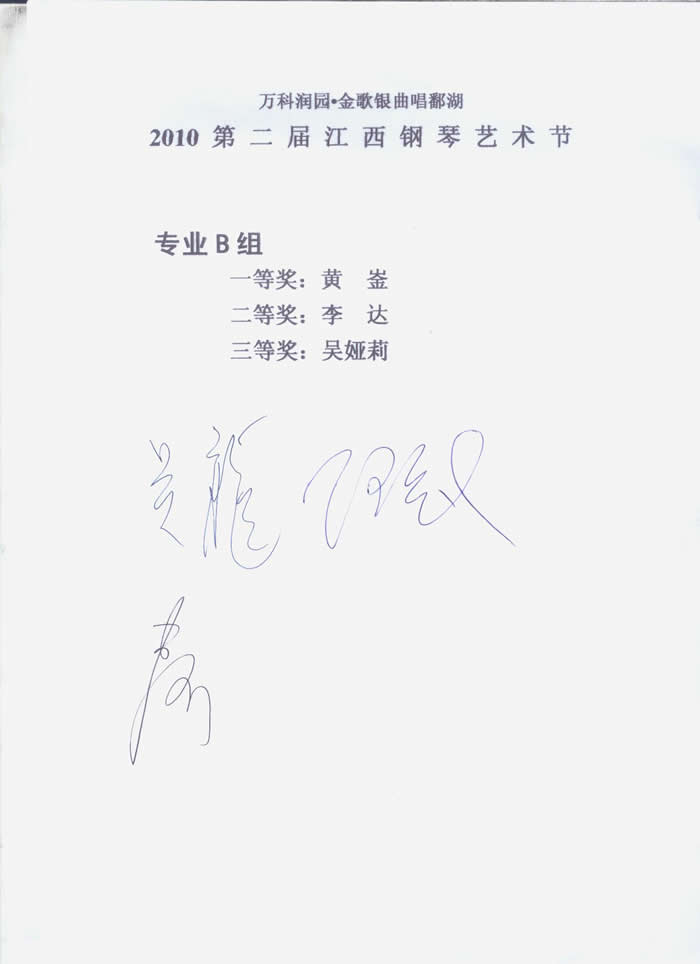 万科润园•金歌银曲唱鄱湖
2010 第二届江西钢琴艺术节
专业 B 组
一等奖：黄 崟
二等奖：李 达
三等奖：吴娅莉